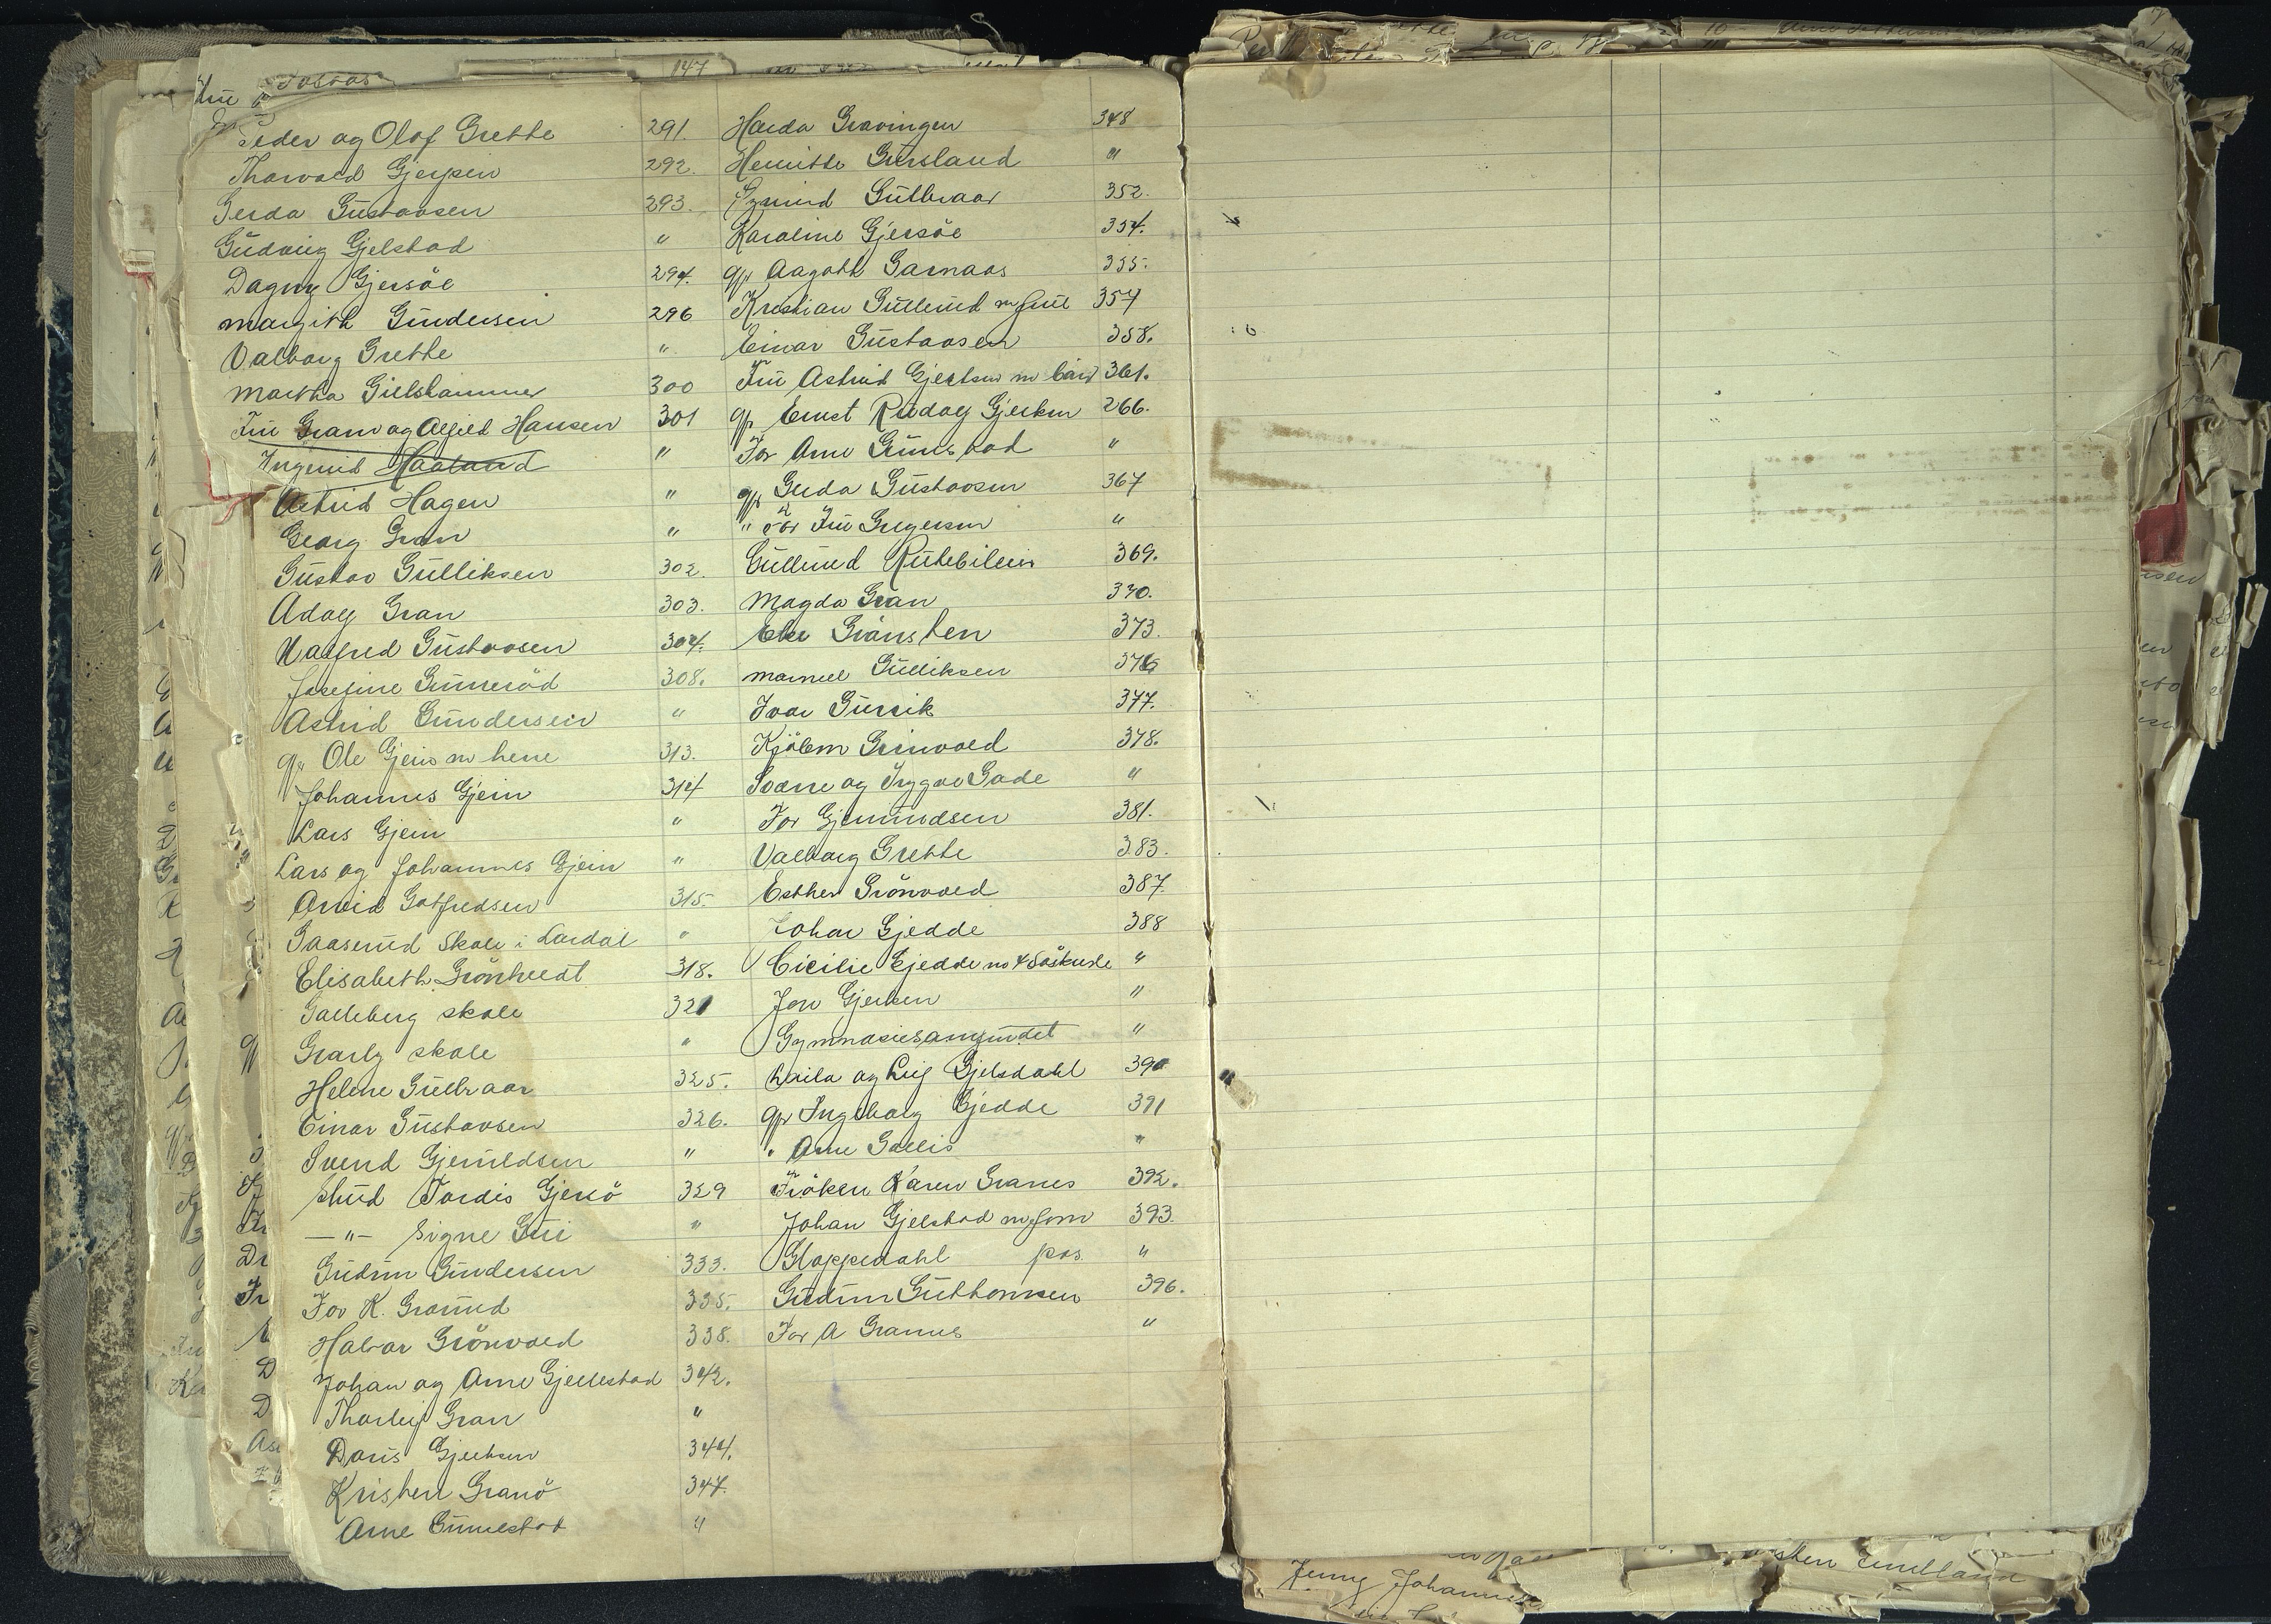 Peder og Olaf Grette 291.
Thorvald Gjerpen 292.
Gerda Gustavsen 293.
Gudveig Gjelstad "
Dagny Gjersöe 294.
Margith Gundersen 296
Valborg Grette "
Martha Gulshammer 300
Fru Gram og Alfild Hansen 301
Ingerid Haaland "
Astrid Hagen "
Georg Gran "
Gustav Gulliksen 302.
Adolf Gran 303.
Halfred Gustavsen 304.
Josefine Gunneröd 308.
Astrid Gundersen "
gr. Ole Gjein m herre 313.
Johannes Gjein 314
Lars Gjein "
Lars og Johannes Gjein "
Arvid Gotfredsen 315.
Gaaserud Skole i Lardal "
Elisabeth Grönhvedt 318.
Galleberg skole 321
Grorly skole "
Helene Gulbraar 325.
Einar Gustavsen 326.
Svend Gjeruldsen "
stud Tordis Gjersö 329
—"— Signe Gui "
Gudrun Gundersen 333.
For K. Grorud 335.
Halvor Grönvold 338.
Johan og Arne Gjellestad 342.
Thorleif Gran "
Doris Gjertsen 344.
Kristen Granö 347.
Arne Gunnestad "
Harda Gravingen 348
Henritte Gursland "
Gulbraar 352.
Karoline Gjersöe 354.
gr Aagoth Garnaas 355.
Kristian Gullerud m frue 357
Einar Gustavsen 358.
Fru Astrid Gjertsen m barn 361.
gr Ernst Rudolf Gjertsen 266.
For Arne Gunestad "
gr Gerda Gustavsen 367
" for Fru Gregersen "
Gullerud Rutebileier 369.
Magda Gran 370.
Else Gränsten 373.
Marnell Gulliksen 376
Ivar Gursik 377.
Kjölem Grinvold 378.
Sverre og Trygve Gade "
For Gjerundsen 381.
Valborg Grette 383.
Esther Grönvold 387.
Johan Gjedde 388
Cicilie Gjedde m 4 Söskende "
Jon Gjersen "
Gymnasiesamfundet "
Laila og Leif Gjelsdahl 390
gr Ingeborg Gjedde 391
" Arne Gallis "
Fröken Karen Granes 392.
Johan Gjelstad m frue 393.
Gloppedahl pos. "
Gudrun Guttormsen 396.
For A Grannes "
Jenny Johannes